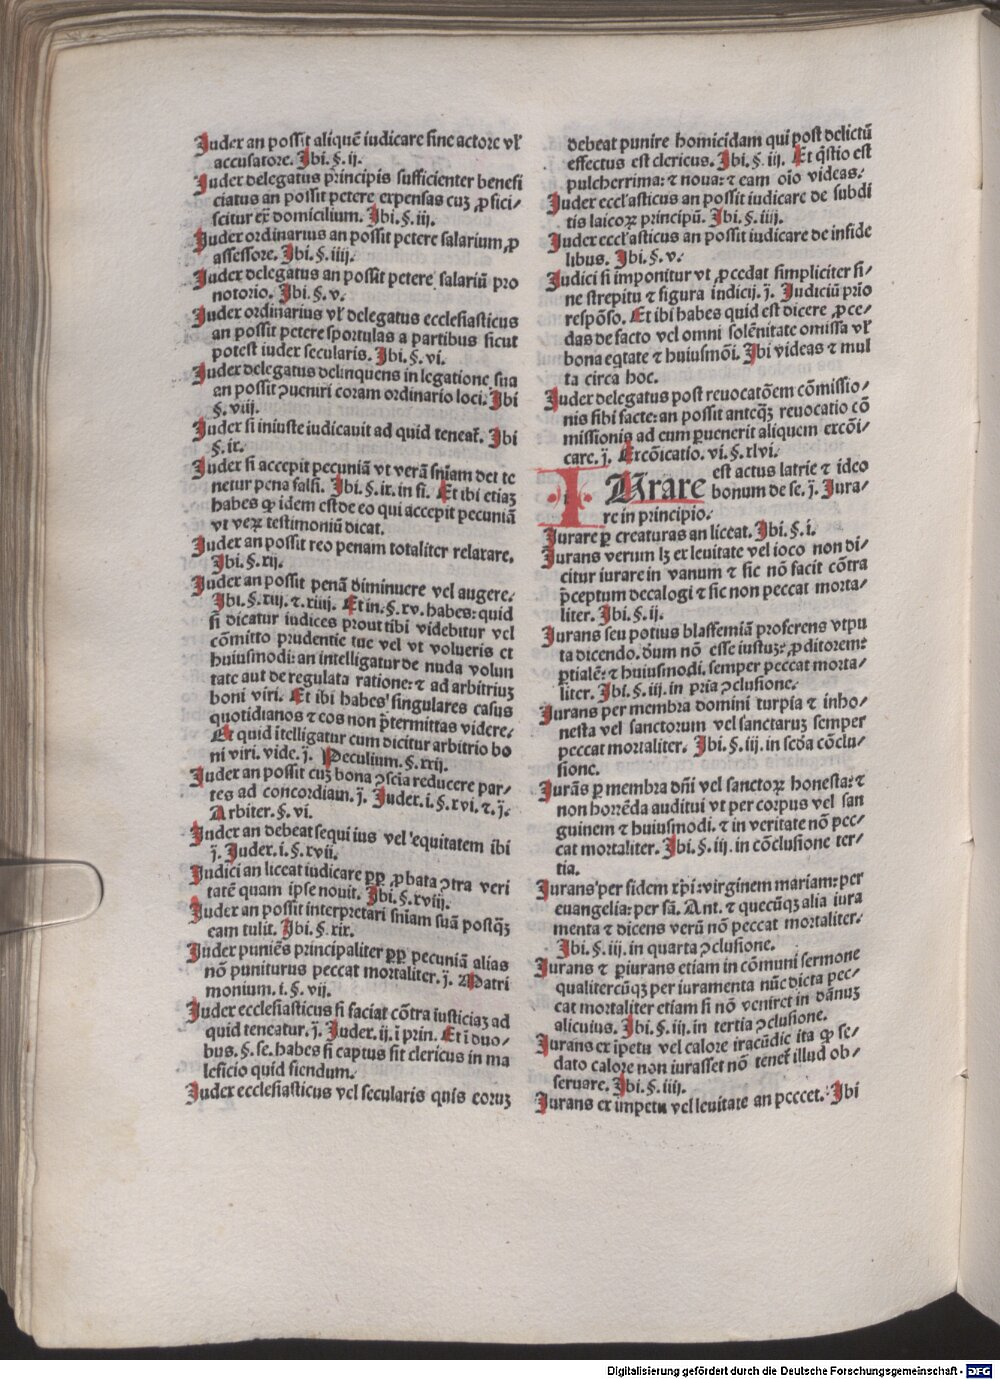 Iudex an possit aliquē iudicare sine actore vł
accusatore. Ibi. §. ij.
Iudex delegatus principis sufficienter benefi
ciatus an possit petere expensas cuꝫ ꝓfici/
scitur ex̄ domicilium. Ibi. §. iij.
Iudex ordinarius an possit petere salarium ꝓ
assessore. Ibi. §. iiij.
Iudex delegatus an possit petere salariū pro
notorio. Ibi. §. v.
Iudex ordinarius vł delegatus ecclesiasticus
an possit petere sportulas a partibus sicut
potest iudex secularis. Ibi. §. vi.
Iudex delegatus delinquens in legatione sua
an possit ꝯueniri coram ordinario loci. Ibi
§. viij.
Iudex si iniuste iudicauit ad quid teneat᷑. Ibi
§. ix.
Iudex si accepit pecuniā vt verā sniam det te
netur pena falsi. Ibi. §. ix. in fi. Et ibi etiaꝫ
habes ꝙ idem est de eo qui accepit pecuniā
vt veꝝ testimoniū dicat.
Iudex an possit reo penam totaliter relaxare.
Ibi. §. xij.
Iudex an possit penā diminuere vel augere.
Ibi. §. xiij. ⁊. xiiij. Et in. §. xv. habes: quid
si dicatur iudices prout tibi videbitur vel
cōmitto prudentie tue vel vt volueris et
huiusmodi: an intelligatur de nuda volun
tate aut de regulata ratione: ⁊ ad arbitriuꝫ
boni viri. Et ibi habes singulares casus
quotidianos ⁊ eos non p̄termittas videre.
Et quid ītelligatur cum dicitur arbitrio bo
ni viri. vide. j̄. Peculium. §. xxij.
Iudex an possit cuꝫ bona ꝯscia reducere par/
tes ad concordiam. j̄. Iudex. i. §. xvi. ⁊. j̄.
Arbiter. §. vi.
Iudex an debeat sequi ius vel equitatem ibi
j̄. Iudex. i. §. xvii.
Iudici an liceat iudicare ꝑꝑ ꝓbata ꝯtra veri
tatē quam ipse nouit. Ibi. §. xviij.
Iudex an possit interpretari sniam suā postꝗꝫ
eam tulit. Ibi. §. xix.
Iudex puniēs principaliter ꝑꝑ pecuniā alias
nō puniturus peccat mortaliter. j̄. Matri
monium. i. §. vij.
Iudex ecclesiasticus si faciat cōtra iusticiaꝫ ad
quid teneatur. j̄. Iudex. ij. ī prin. Et ī duo/
bus. §. se. habes si captus sit clericus in ma
leficio quid fiendum.
Iudex ecclesiasticus vel secularis quis eoruꝫ
debeat punire homicidam qui post delictū
effectus est clericus. Ibi. §. iij. Et q̄stio est
pulcherrima: ⁊ noua: ⁊ eam oīo videas.
Iudex eccłasticus an possit iudicare de subdi
tis laicoꝝ principū. Ibi. §. iiij.
Iudex eccłasticus an possit iudicare de infide
libus. Ibi. §. v.
Iudici si imponitur vt ꝓcedat simpliciter si/
ne strepitu ⁊ figura iudicij. j̄. Iudiciū prio
respōso. Et ibi habes quid est dicere ꝓce/
das de facto vel omni solēnitate omissa vł
bona eqtate ⁊ huiusmōi. Ibi videas ⁊ mul
ta circa hoc.
Iudex delegatus post reuocatōem cōmissio/
nis sibi facte: an possit anteqꝫ reuocatio cō
missionis ad eum ꝑuenerit aliquem excōi/
care. j̄. Excōicatio. vi. §. xlvi.
IUrare est actus latrie ⁊ ideo
bonum de se. j̄. Iura/
re in principio.
Iurare ꝑ creaturas an liceat. Ibi. §. i.
Iurans verum lꝫ ex leuitate vel ioco non di/
citur iurare in vanum ⁊ sic nō facit cōtra
p̄ceptum decalogi ⁊ sic non peccat morta/
liter. Ibi. §. ij.
Iurans seu potius blassemiā proferens vtpu
ta dicendo. dum nō esse iustuꝫ: ꝓditorem:
ꝑtialē: ⁊ huiusmodi. semper peccat morta/
liter. Ibi. §. iij. in pria ꝯclusione.
Iurans per membra domini turpia ⁊ inho/
nesta vel sanctorum vel sanctaruꝫ semper
peccat mortaliter. Ibi. §. iij. in scda cōclu/
sione.
Iurās ꝑ membra dñi vel sanctoꝝ honesta: ⁊
non horrēda auditui vt per corpus vel san
guinem ⁊ huiusmodi. ⁊ in veritate nō pec/
cat mortaliter. Ibi. §. iij. in cōclusione ter/
tia.
Iurans per fidem xp̄i: virginem mariam: per
euangelia: per sā. Ant. ⁊ quecūqꝫ alia iura
menta ⁊ dicens verū nō peccat mortaliter.
Ibi. §. iij. in quarta ꝯclusione.
Iurans ⁊ ꝑiurans etiam in cōmuni sermone
qualitercūqꝫ per iuramenta nūc dicta pec/
cat mortaliter etiam si nō veniret in dānuꝫ
alicuius. Ibi. §. iij. in tertia ꝯclusione.
Iurans ex īpetu vel calore iracūdie ita ꝙ se/
dato calore non iurasset nō tenet᷑ illud ob/
seruare. Ibi. §. iiij.
Iurans ex impetu vel leuitate an peccet. Ibi
Digitalisierung gefördert durch die Deutsche Forschungsgemeinschaft - DFG